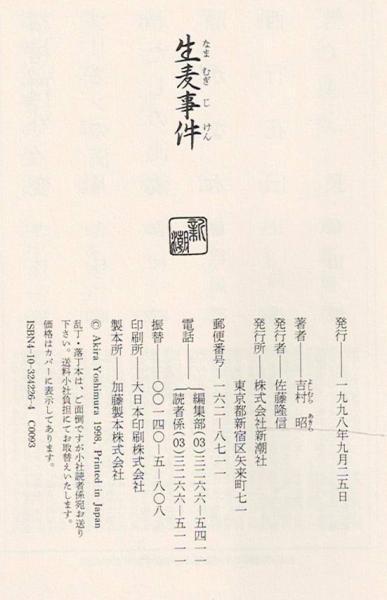 生麦事件
なま むぎ じ けん
新潮
発行――一九九八年九月二五日
著者――吉村 昭
よしむら あきら
発行者――佐藤隆信
発行所――株式会社新潮社
東京都新宿区矢来町七一
郵便番号――一六二-八七一一
電話――編集部(03)三二六六-五四一一
読者係(03)三二六六-五一一一
振替――〇〇一四〇-五-八〇八
印刷所――大日本印刷株式会社
製本所――加藤製本株式会社
© Akira Yoshimura 1998, Printed in Japan
乱丁・落丁本は、ご面倒ですが小社読者係宛お送り
下さい。送料小社負担にてお取替えいたします。
価格はカバーに表示してあります。
ISBN4-10-324226-4 C0093